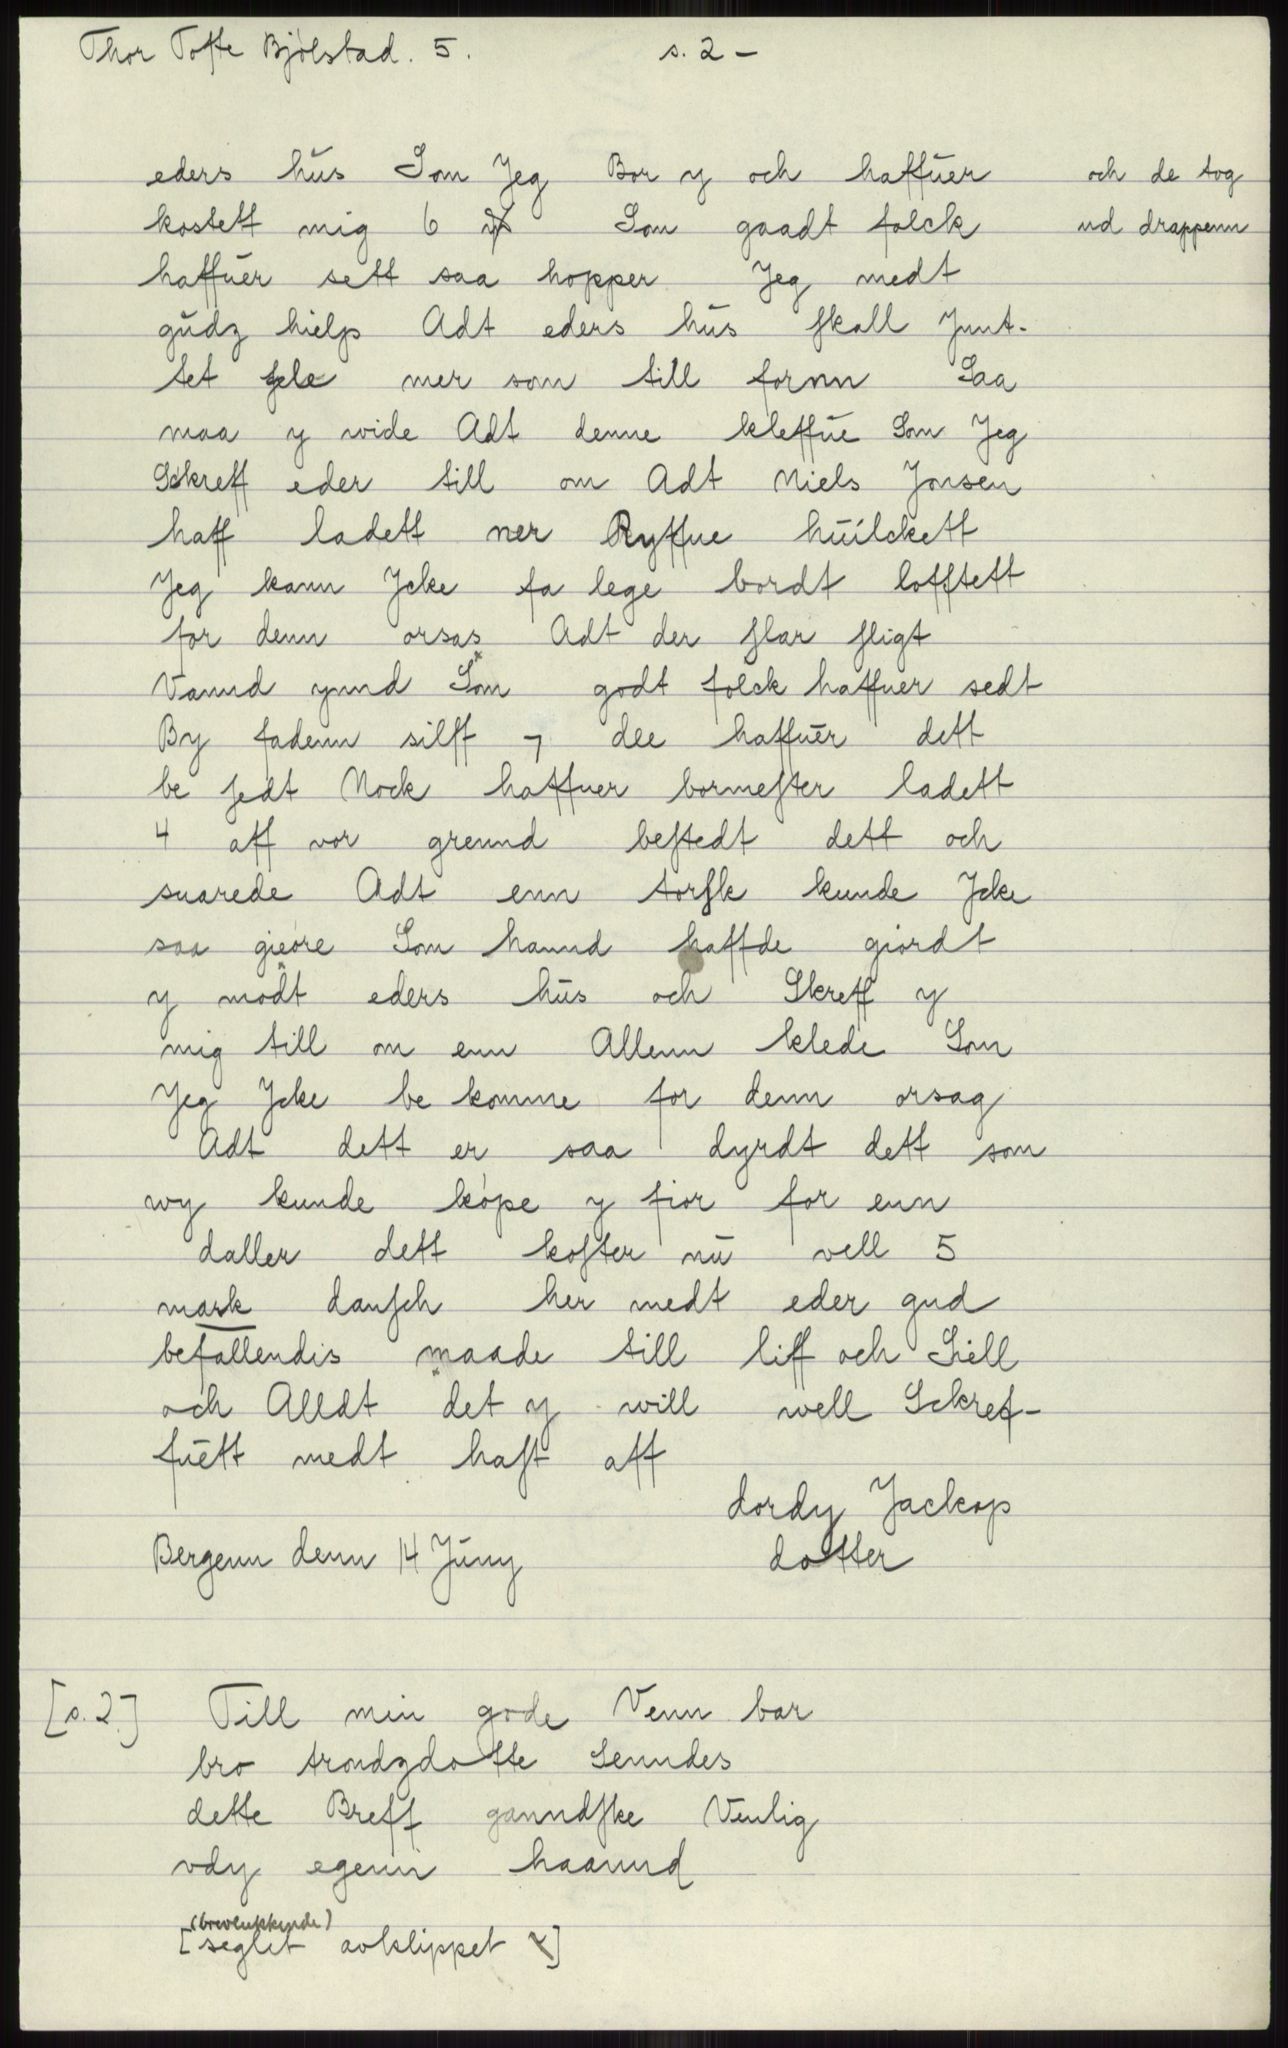 Thor Tofte Bjølstad. 5. s. 2 –
eders hūs Som Jeg Bor y och haffūer och de tog
kostett mig 6 Som gaadt folck ud drappenn
haffūer sett saa hopper Jeg medt
gūdz hielp Adt eders hūs skall Jnnt-
tet mer som till fornn Saa
maa y wide Adt denne kleffūe Som Jeg
Sckreff eder till om Adt Niels Jonsen
haff ladett ner Ryffue hūilckett
Jeg kann Jcke fa lege bordt lofftett
for denn orsas Adt der slar sligt
Vannd ynnd Som godt folck haffuer sedt
By fadenn silff dee haffūer dett
be sedt Nock haffuer bormester ladett
4 aff vor greund bestedt dett och
suarede Adt enn torsk kunde Jcke
saa gieore Som hannd haffde giordt
y modt eders hūs och Skreff y
mig till om enn Allenn klede Som
Jeg Jcke be komme for denn orsag
Adt dett er saa dyrdt dett som
wy kunde köpe y fior for enn
daller dett koster nū vell 5
mark dansch her medt eder gud
befallendis maade till liff och Siell
och Alldt det y will well Sckref-
fūett medt hast aff
dordy Jackop
Bergenn denn 14 Jūny dotter
[s. 2.] Till min gode Venn bar
bro trondzdotte Senndes
dette Breff ganndske Venlig
vdy egenn haannd
(brevlukkende)
[seglet avklippet]